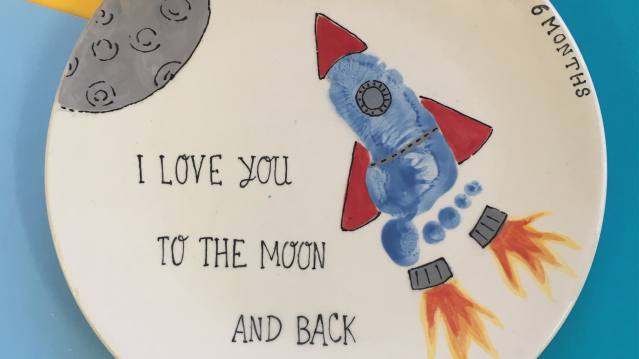 I LOVE YOU
TO THE MOON
AND BACK
6 MONTHS